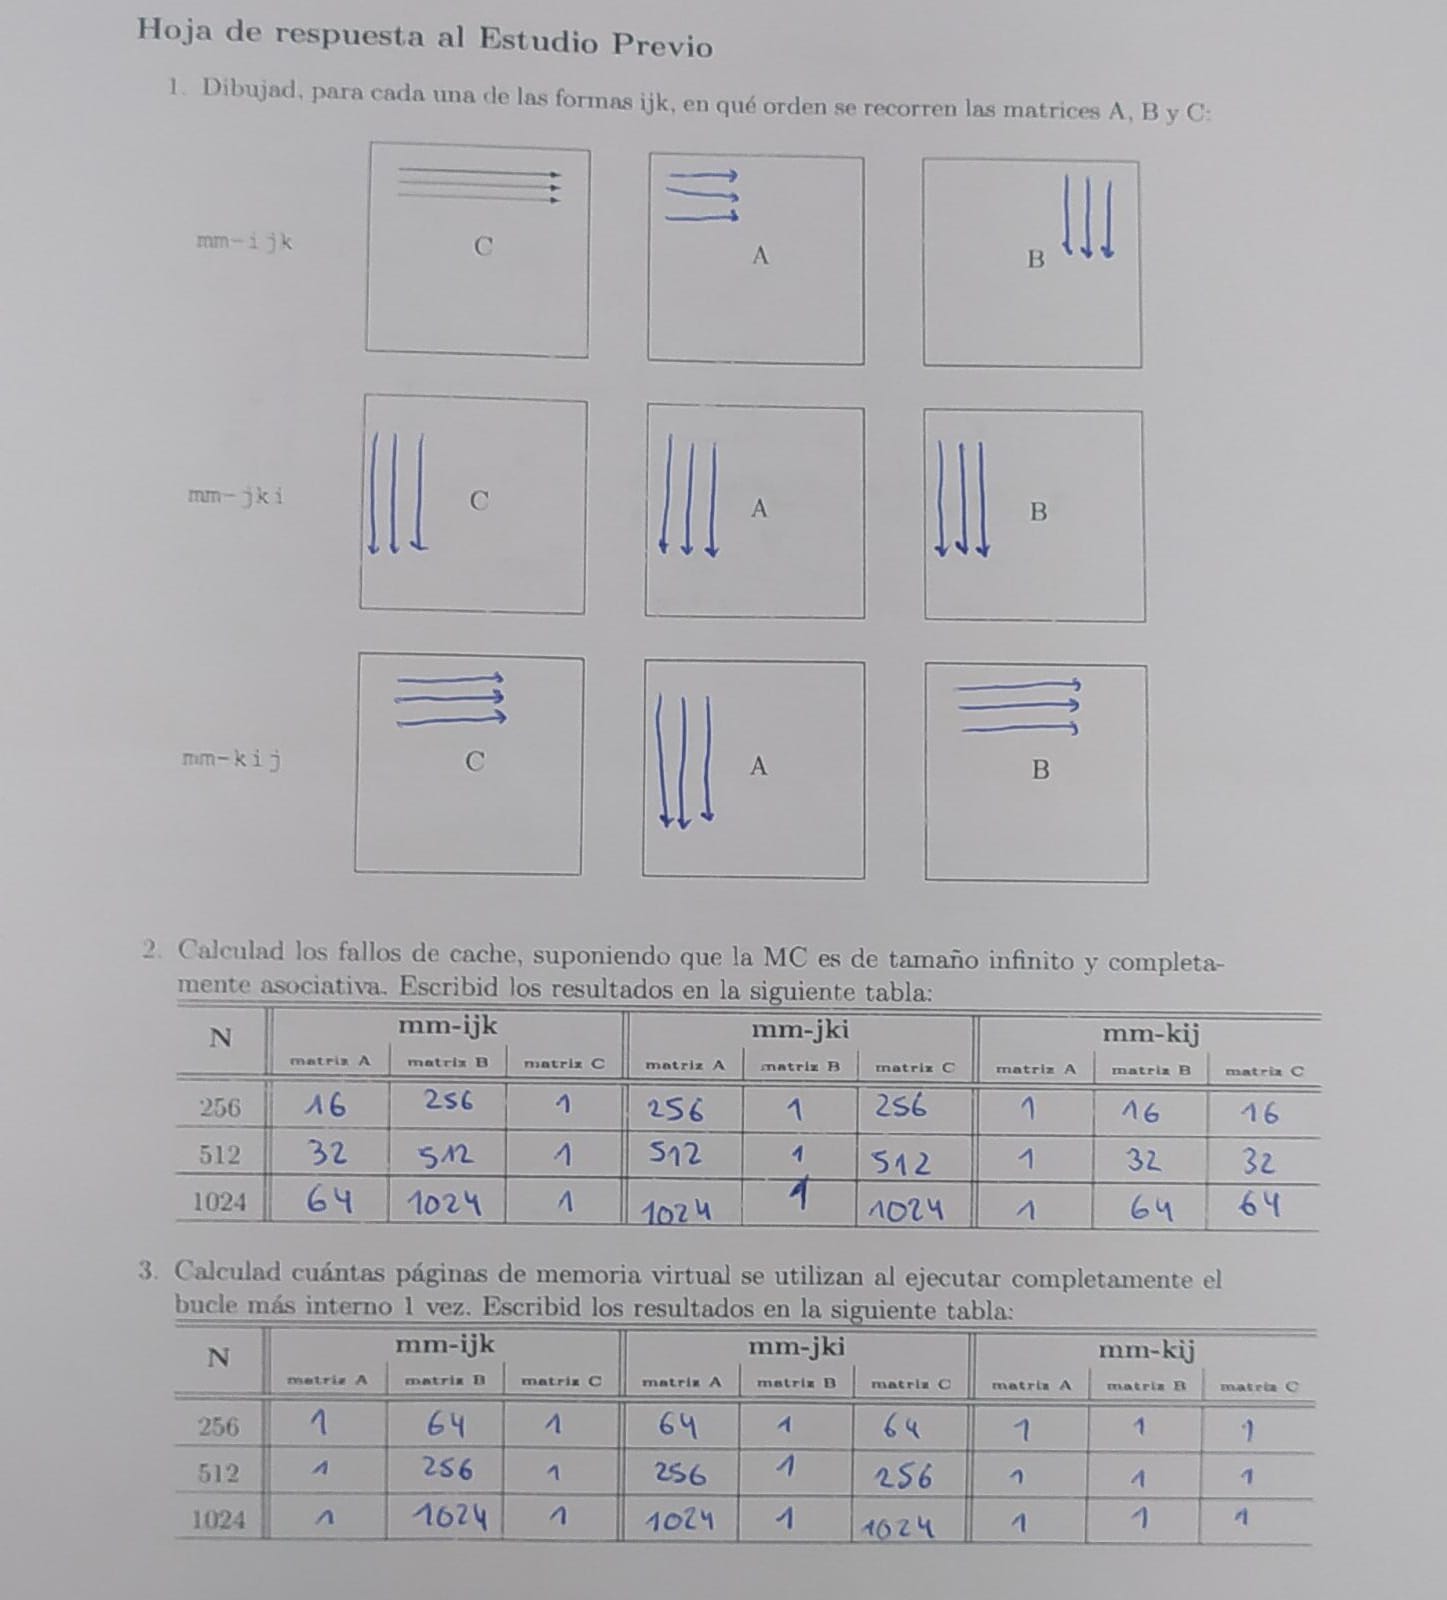 Hoja de respuesta al Estudio Previo
1. Dibujad, para cada una de las formas ijk, en qué orden se recorren las matrices A, B y C:
mm-ijk C A B
mm-jki C A B
mm-kij C A B
2. Calculad los fallos de cache, suponiendo que la MC es de tamaño infinito y completa-
mente asociativa. Escribid los resultados en la siguiente tabla:
N mm-ijk mm-jki mm-kij
matriz A matriz B matriz C matriz A matriz B matriz C matriz A matriz B matriz C
256 16 256 1 256 1 256 1 16 16
512 32 512 1 512 1 512 1 32 32
1024 64 1024 1 1024 1 1024 1 64 64
3. Calculad cuántas páginas de memoria virtual se utilizan al ejecutar completamente el
bucle más interno 1 vez. Escribid los resultados en la siguiente tabla:
N mm-ijk mm-jki mm-kij
matriz A matriz B matriz C matriz A matriz B matriz C matriz A matriz B matriz C
256 1 64 1 64 1 64 1 1 1
512 1 256 1 256 1 256 1 1 1
1024 1 1024 1 1024 1 1024 1 1 1